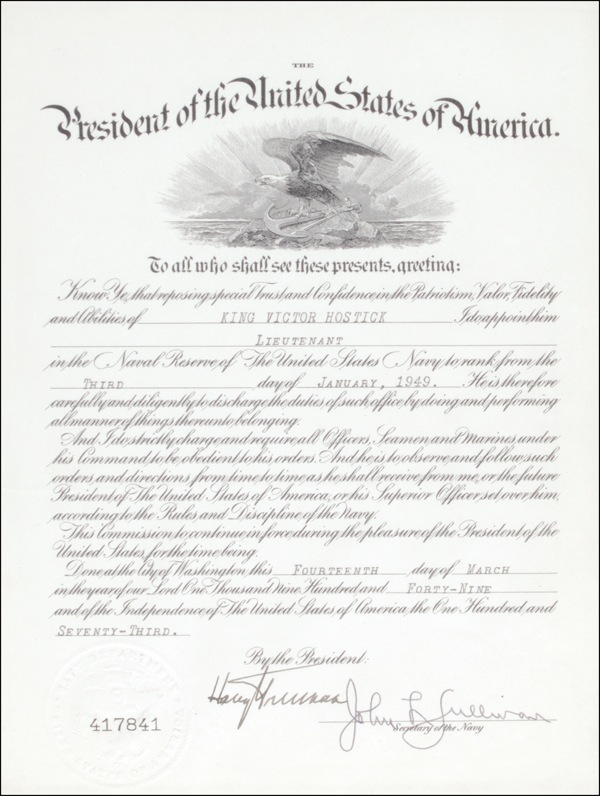 THE
President of the United States of America.
To all who shall see these presents, greeting:
Know Ye, that reposing special Trust and Confidence in the Patriotism, Valor, Fidelity
and Abilities of KING VICTOR HOSTICK I do appoint him
LIEUTENANT
in the Naval Reserve of The United States Navy to rank from the
THIRD day of JANUARY, 1949. He is therefore
carefully and diligently to discharge the duties of such office by doing and performing
all manner of things thereunto belonging.
And I do strictly charge and require all Officers, Seamen and Marines under
his Command to be obedient to his orders. And he is to observe and follow such
orders and directions from time to time as he shall receive from me, or the future
President of The United States of America, or his Superior Officer set over him,
according to the Rules and Discipline of the Navy.
This Commission to continue in force during the pleasure of the President of the
United States, for the time being.
Done at the City of Washington this FOURTEENTH day of MARCH
in the year of our Lord One Thousand Nine Hundred and FORTY-NINE
and of the Independence of The United States of America the One Hundred and
SEVENTY-THIRD.
By the President:
Harry Truman
John L Sullivan
Secretary of the Navy
417841